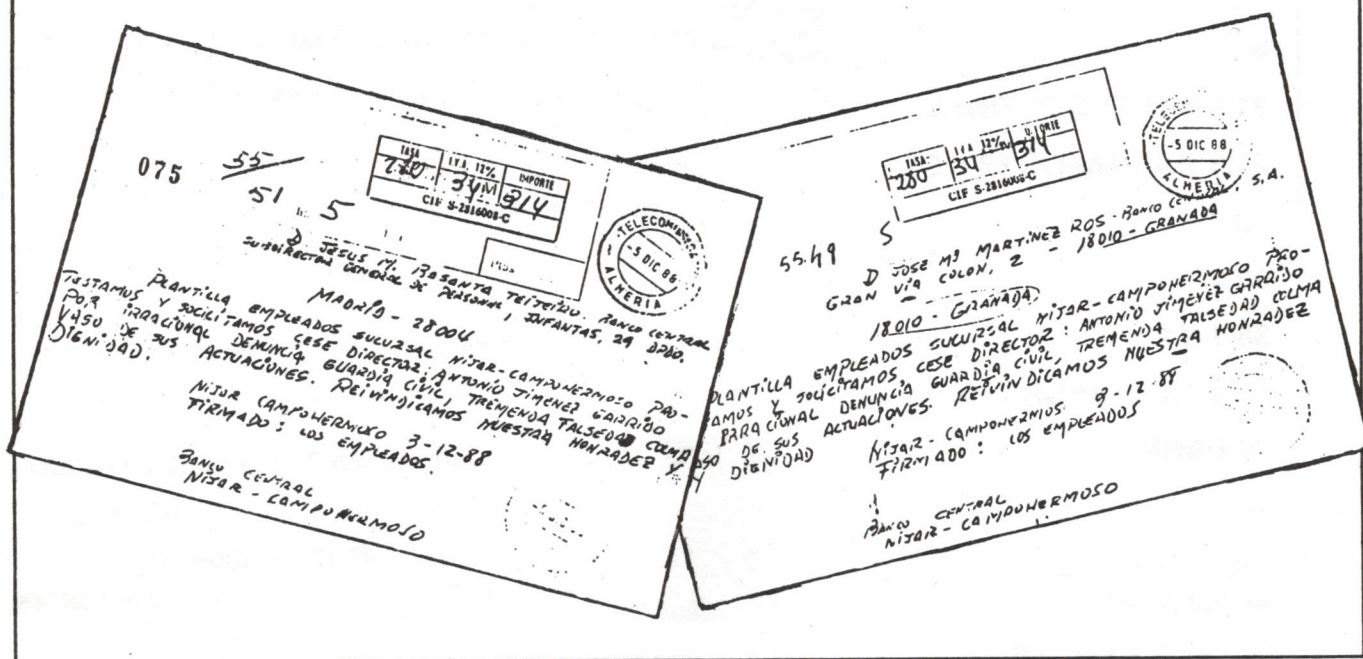 075
55
51
5
TASA I.V.A. 12% IMPORTE
280 34 314
CIF S-2816008-C
TELECOM
-5 DIC 88
ALMERIA
D JESUS M. BASANTA TEIJEIRO. BANCO CENTRAL
SUBDIRECTOR GENERAL DE PERSONAL, INFANTAS, 29 DPDO.
MADRID - 28004
PLANTILLA EMPLEADOS SUCURSAL NIJAR-CAMPOHERMOSO PRO-
TESTAMOS Y SOCILITAMOS CESE DIRECTOR: ANTONIO JIMENEZ GARRIDO
POR IRRACIONAL DENUNCIA GUARDIA CIVIL, TREMENDA FALSEDAD COLMA
VASO DE SUS ACTUACIONES. REIVINDICAMOS NUESTRA HONRADEZ Y
DIGNIDAD.
NIJAR CAMPOHERMOSO 3-12-88
FIRMADO: LOS EMPLEADOS.
BANCO CENTRAL
NIJAR - CAMPOHERMOSO
TASA I.V.A. 12%
280 34 314
CIF S-2816008-C
TELEC
-5 DIC 88
ALMERIA
55.49 5
D JOSE Mª MARTINEZ ROS - BANCO CENTRAL, S.A.
GRAN VIA COLON, 2 - 18010 - GRANADA
18010 - GRANADA
PLANTILLA EMPLEADOS SUCURSAL NIJAR-CAMPOHERMOSO PRO-
AMOS Y SOLICITAMOS CESE DIRECTOR: ANTONIO JIMENEZ GARRIDO
IRRACIONAL DENUNCIA GUARDIA CIVIL, TREMENDA FALSEDAD COLMA
SO DE SUS ACTUACIONES. REIVINDICAMOS NUESTRA HONRADEZ
Y DIGNIDAD
NIJAR - CAMPOHERMOS 3-12-88
FIRMADO: LOS EMPLEADOS
BANCO CENTRAL
NIJAR - CAMPOHERMOSO